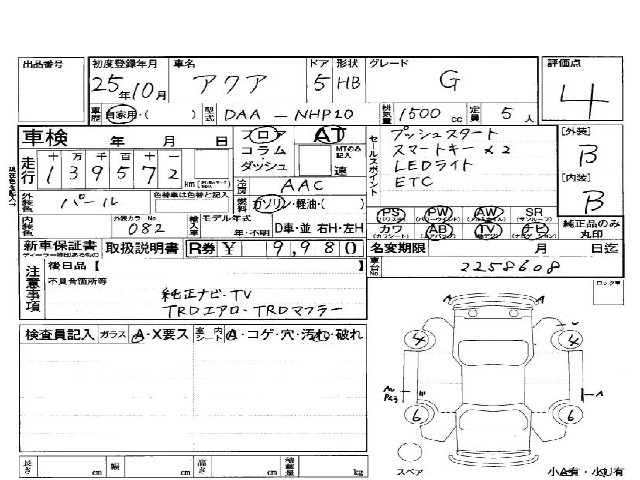 出品番号
初度登録年月
25年10月
車名
アクア
ドア
5
形状
HB
グレード
G
評価点
4
車歴
自家用・( )
型式
DAA-NHP10
排気量
1500 cc
定員
5 人
車検 年 月 日
走行
十万千百十一
139572
km
フロア
コラム
ダッシュ
AT
MTのみ記入
速
セールスポイント
プッシュスタート
スマートキー×2
LEDライト
ETC
[外装]
B
[内装]
B
外装色
パール
色替車は色替と記入
冷房
AAC
燃料
ガソリン・軽油・( )
内装色
外装カラーNo
082
輸入車
モデル年式
年・不明
D車・並 右H・左H
PS PW AW SR
カワ AB TV ナビ
純正品のみ
丸印
新車保証書
取扱説明書
R券 ¥ 9,980
名変期限 月 日迄
車台No
2258608
注意事項
後日品【 】
不具合箇所等
純正ナビ・TV
TRDエアロ・TRDマフラー
ロック車
検査員記入 ガラス A・X要ス 室内シート A・コゲ・穴・汚れ・破れ
A A
4 4
A
6 6
スペア
小A有・小U有
長さ cm 幅 cm 高さ cm 積載量 kg